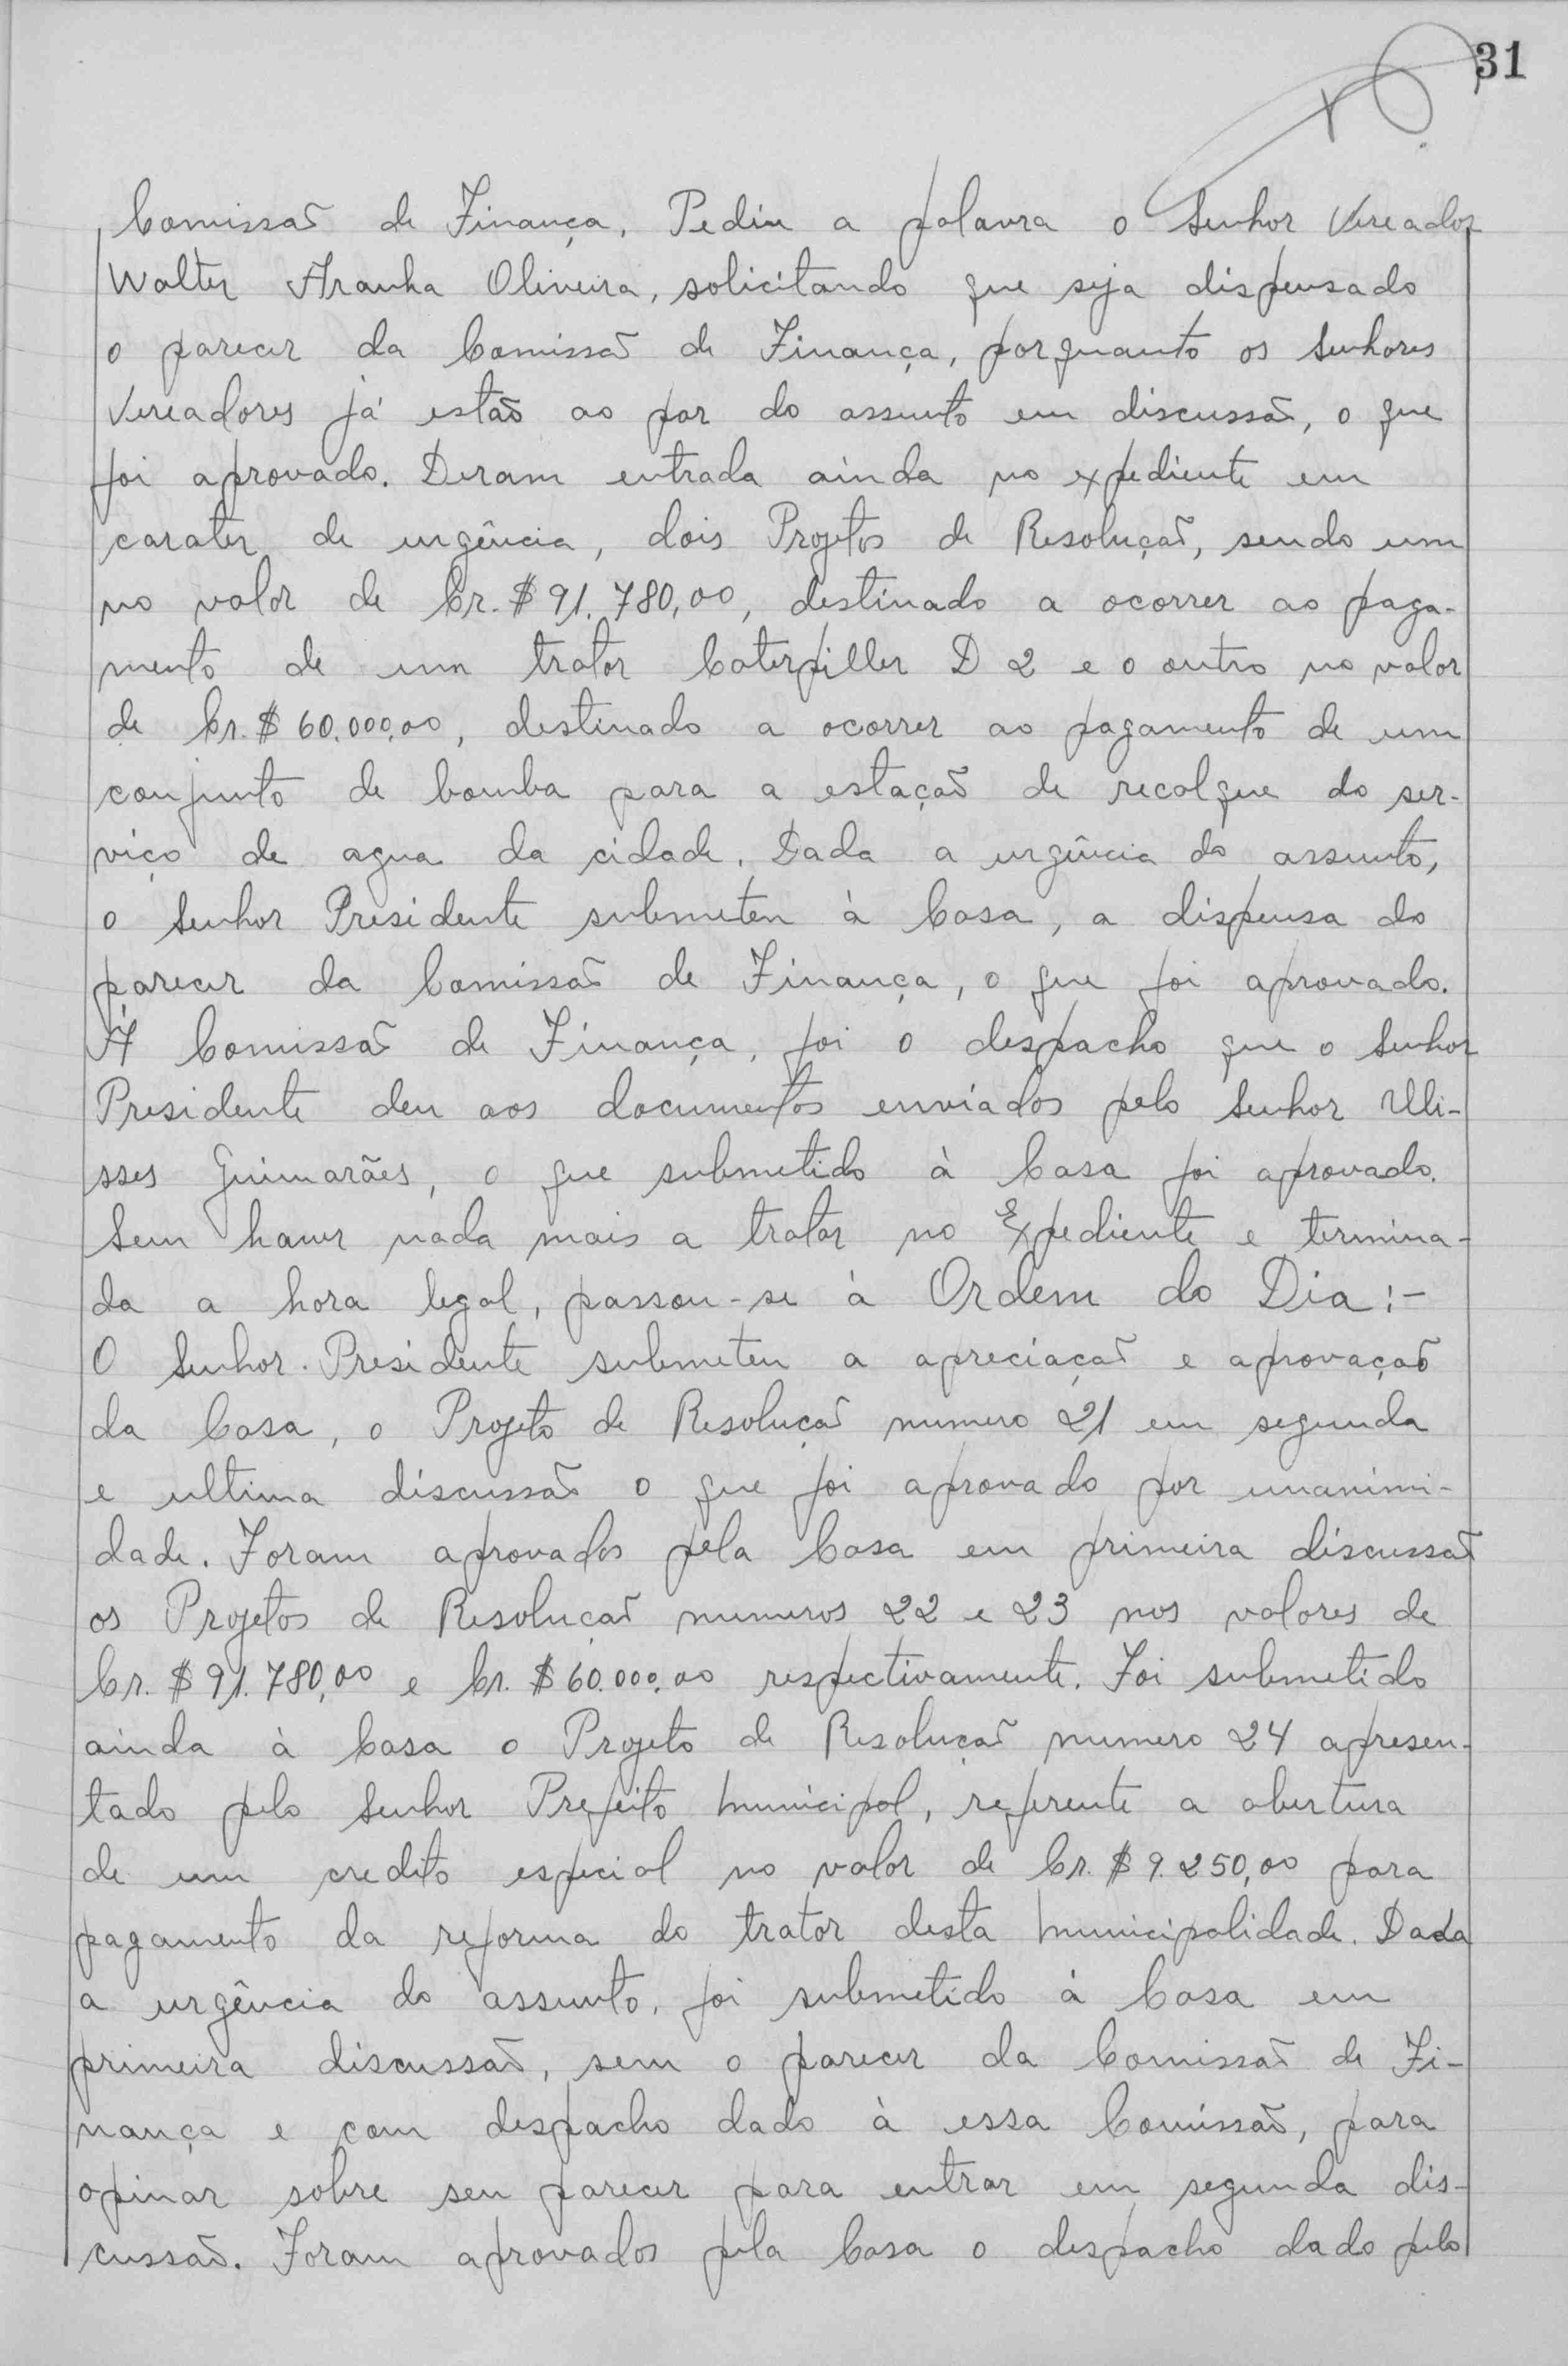 31
Comissão de Finança. Pediu a palavra o Senhor Vereador
Walter Aranha Oliveira, solicitando que seja dispensado
o parecer da Comissão de Finança, porquanto os Senhores
Vereadores já estão ao par do assunto em discussão, o que
foi aprovado. Deram entrada ainda no expediente em
carater de urgência, dois Projetos de Resolução, sendo um
no valor de Cr. $ 91.780,00, destinado a ocorrer ao paga-
mento de um trator Caterpiller D 2 e o outro no valor
de Cr. $ 60.000,00, destinado a ocorrer ao pagamento de um
conjunto de bomba para a estação de recalque do ser-
viço de agua da cidade. Dada a urgência do assunto,
o Senhor Presidente submeteu à Casa, a dispensa do
parecer da Comissão de Finança, o que foi aprovado.
À Comissão de Finança, foi o despacho que o Senhor
Presidente deu aos documentos enviados pelo Senhor Uli-
sses Guimarães, o que submetido à Casa foi aprovado.
Sem haver nada mais a tratar no Expediente e termina-
da a hora legal, passou-se à Ordem do Dia:-
O Senhor Presidente submeteu a apreciação e aprovação
da Casa, o Projeto de Resolução numero 21 em segunda
e ultima discussão o que foi aprovado por unanimi-
dade. Foram aprovados pela Casa em primeira discussão
os Projetos de Resolução numeros 22 e 23 nos valores de
Cr. $ 91.780,00 e Cr. $ 60.000,00 respectivamente. Foi submetido
ainda à Casa o Projeto de Resolução numero 24 apresen-
tado pelo Senhor Prefeito Municipal, referente a abertura
de um credito especial no valor de Cr. $ 9.250,00 para
pagamento da reforma do trator desta Municipalidade. Dada
a urgência do assunto, foi submetido à Casa em
primeira discussão, sem o parecer da Comissão de Fi-
nança e com despacho dado à essa Comissão, para
opinar sobre seu parecer para entrar em segunda dis-
cussão. Foram aprovados pela Casa o despacho dado pelo